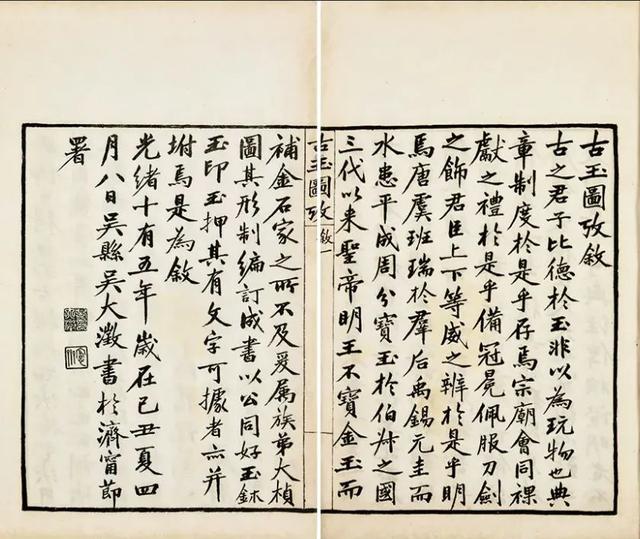 古玉圖攷敘
古之君子比德於玉非以為玩物也典
章制度於是乎存焉宗廟會同祼
獻之禮於是乎備冠冕佩服刀劍
之飾君臣上下等威之辨於是乎明
焉唐虞班瑞於羣后禹錫元圭而
水患平成周分寶玉於伯叔之國
三代以來聖帝明王不寶金玉而
古玉圖攷 敘 一
補金石家之所不及爰屬族弟大楨
圖其形制編訂成書以公同好玉鉥
玉印玉押其有文字可據者亦並
坿焉是為敘
光緒十有五年歲在己丑夏四
月八日吳縣吳大澂書於濟甯節
署